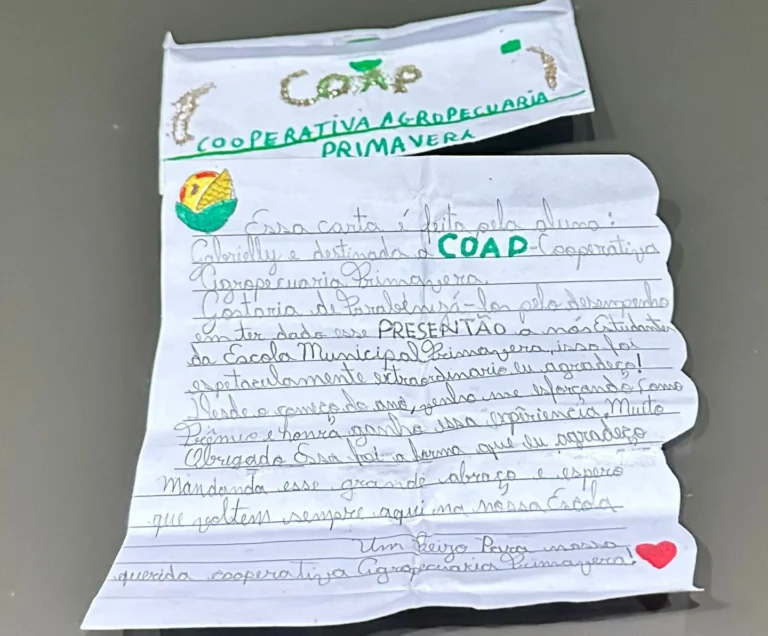 COAP
COOPERATIVA AGROPECUARIA
PRIMAVERA
Essa carta é feita pela aluno:
Gabrielly e destinada a COAP-Cooperativa
Agropecuaria Primavera.
Gostaria de Parabenizá-los pelo desempenho
em ter dado esse PRESENTÃO a nós Estudantes
da Escola Municipal Primavera, isso foi
espetaculamente extraordinario eu agradeço!
Desde o começo do ano, venho me esforçando, como
Prêmio e honrá ganho essa expiriencia, Muito
Obrigado Essa foi a forma que eu agradeço
Mandanda esse grande abraço e espero
que voltem sempre aqui na nossa Escola
Um Beizo Para nossa
querida cooperativa Agropecuária Primavera!